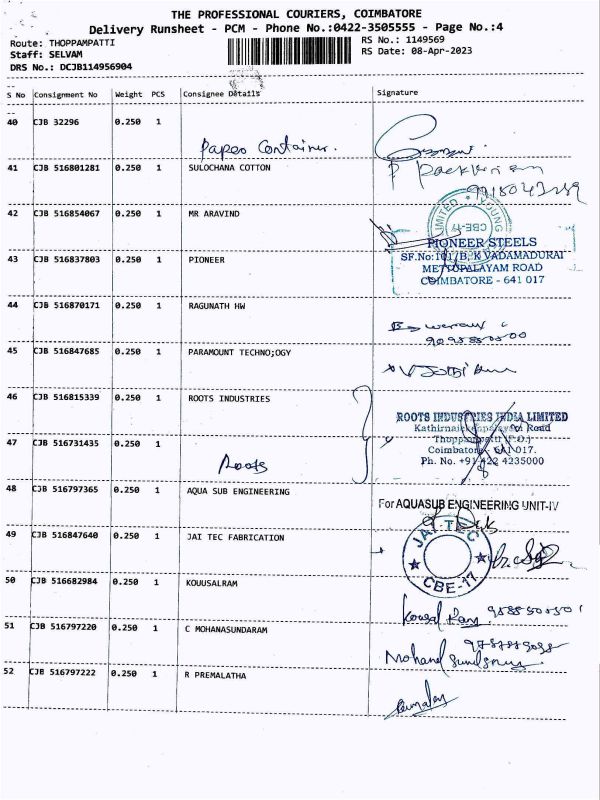 THE PROFESSIONAL COURIERS, COIMBATORE
Delivery Runsheet - PCM - Phone No.:0422-3505555 - Page No.:4
Route: THOPPAMPATTI
RS No.: 1149569
Staff: SELVAM
RS Date: 08-Apr-2023
DRS No.: DCJB114956904
S No Consignment No Weight PCS Consignee Details Signature
40 CJB 32296 0.250 1
Paper Container.
41 CJB 516801281 0.250 1 SULOCHANA COTTON
42 CJB 516854067 0.250 1 MR ARAVIND
LIMITED YOUNG
CBE-17
43 CJB 516837803 0.250 1 PIONEER
PIONEER STEELS
SF.No:101/B, K VADAMADURAI
METTUPALAYAM ROAD
COIMBATORE - 641 017
44 CJB 516870171 0.250 1 RAGUNATH HW
45 CJB 516847685 0.250 1 PARAMOUNT TECHNO;OGY
46 CJB 516815339 0.250 1 ROOTS INDUSTRIES
ROOTS INDUSTRIES INDIA LIMITED
Road
Thoppampatti (P.O.)
Coimbatore - 641-017.
Ph. No. +91-422 4235000
47 CJB 516731435 0.250 1
Roots
48 CJB 516797365 0.250 1 AQUA SUB ENGINEERING
For AQUASUB ENGINEERING UNIT-IV
49 CJB 516847640 0.250 1 JAI TEC FABRICATION
JAI TEC
CBE-17
50 CJB 516682984 0.250 1 KOUUSALRAM
51 CJB 516797220 0.250 1 C MOHANASUNDARAM
52 CJB 516797222 0.250 1 R PREMALATHA